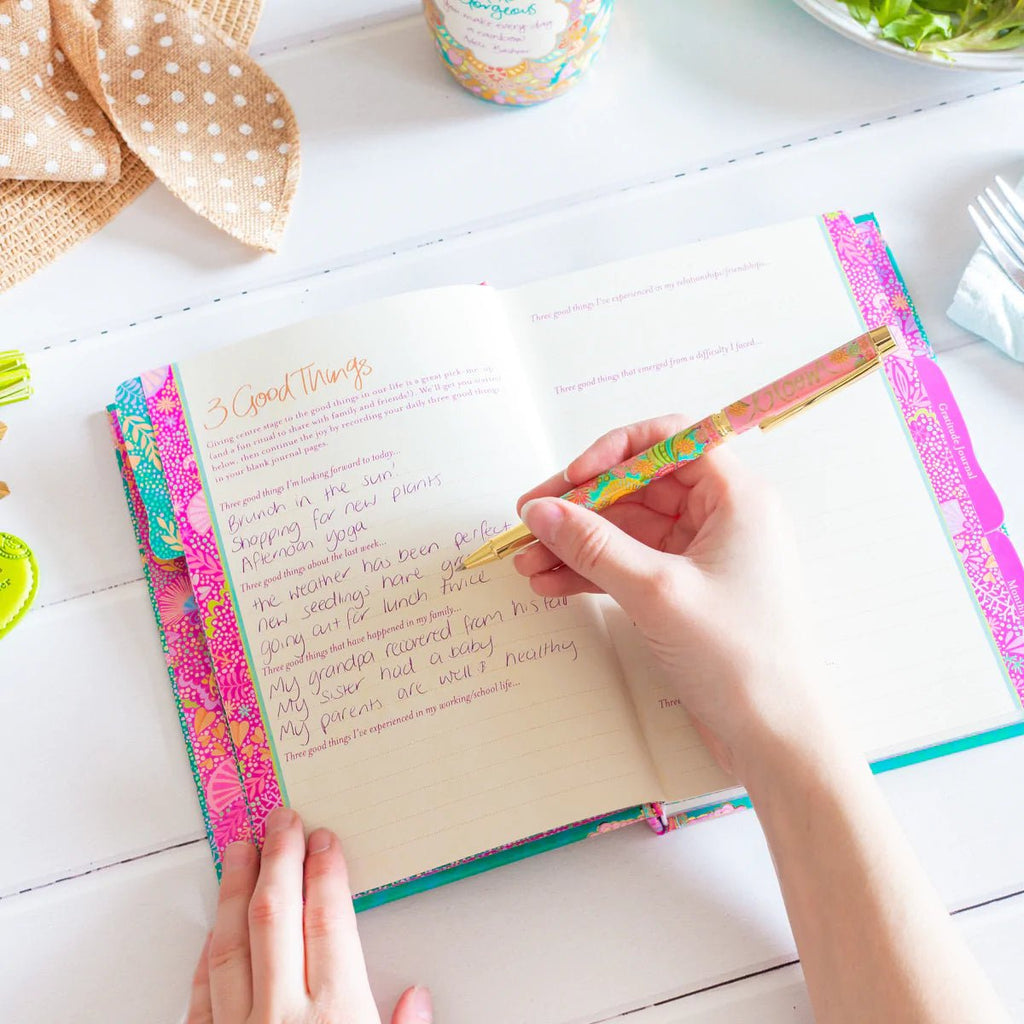 Gorgeous
you make every day
a rainbow
3 Good Things
Giving centre stage to the good things in your life is a great pick-me-up
(and a fun ritual to share with family and friends!). We'll get you started
below, then continue the joy by recording your daily three good things
in your blank journal pages.
Three good things I'm looking forward to today...
Brunch in the sun!
Shopping for new plants
Afternoon yoga
Three good things about the last week...
the weather has been perfect
new seedlings have
going out for lunch twice
Three good things that have happened in my family...
My grandpa recovered from his
My sister had a baby
My parents are well & healthy
Three good things I've experienced in my working/school life...
Three good things I've experienced in my relationships/friendships...
Three good things that emerged from a difficulty I faced...
Three
Bloom
Gratitude Journal